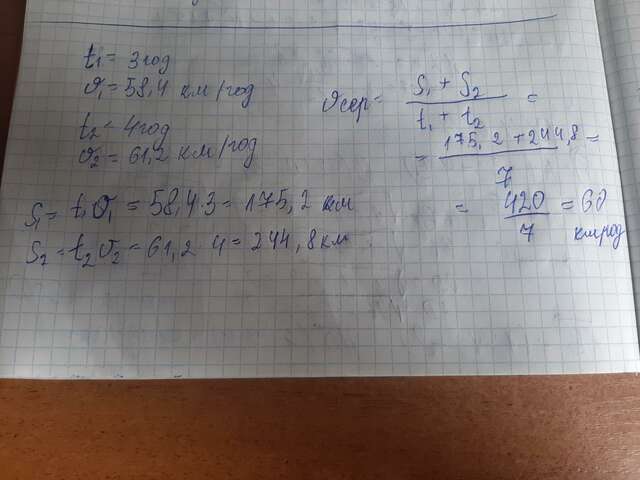 t₁ = 3год
υ₁ = 58,4 км/год
t₂ = 4год
υ₂ = 61,2 км/год
S₁ = t₁υ₁ = 58,4·3 = 175,2 км
S₂ = t₂υ₂ = 61,2·4 = 244,8 км
υсер = S₁ + S₂ / t₁ + t₂ =
= 175,2 + 244,8 / 7 =
= 420 / 7 = 60 км/год